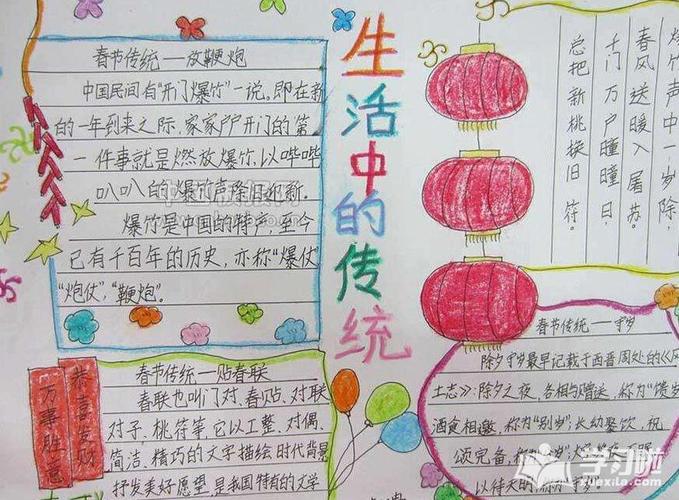 春节传统——放鞭炮
中国民间有"开门爆竹"一说。即在新
的一年到来之际，家家户户开门的第
一件事就是燃放爆竹，以哔哔
叭叭的爆竹声除旧迎新。
爆竹是中国的特产，至今
已有千百年的历史，亦称"爆仗"
"炮仗"，"鞭炮"。
恭喜发财
万事胜意
春节传统——贴春联
春联也叫门对、春贴、对联
对子、桃符等，它以工整、对偶、
简洁、精巧的文字描绘时代背景
抒发美好愿望，是我国特有的文学
生活中的传统
声中一岁除，
春风送暖入屠苏。
千门万户曈曈日，
总把新桃换旧符。
春节传统——守岁
除夕守岁最早记载于西晋周处的《风
土志》：除夕之夜，各相与赠送，称为"馈岁
酒食相邀，称为"别岁"；长幼聚饮，祝
颂完备，称
以待天
学习啦
www.xuexila.com